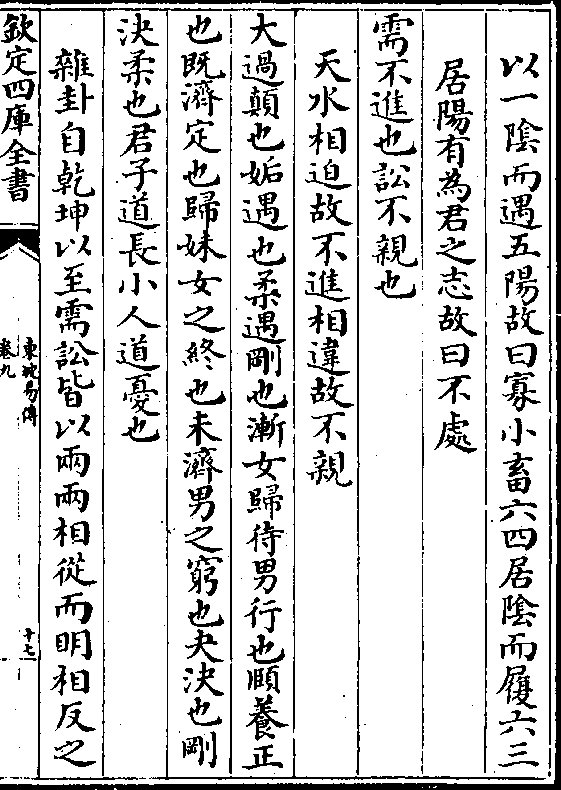 以一陰而遇五陽故曰寡小畜六四居陰而履六三
居陽有為君之志故曰不處
需不進也訟不親也
天水相迫故不進相違故不親
大過顛也姤遇也柔遇剛也漸女歸待男行也頤養正
也既濟定也歸妹女之終也未濟男之窮也夬決也剛
決柔也君子道長小人道憂也
雜卦自乾坤以至需訟皆以兩兩相從而明相反之
欽定四庫全書
東坡易傳
卷九
十七